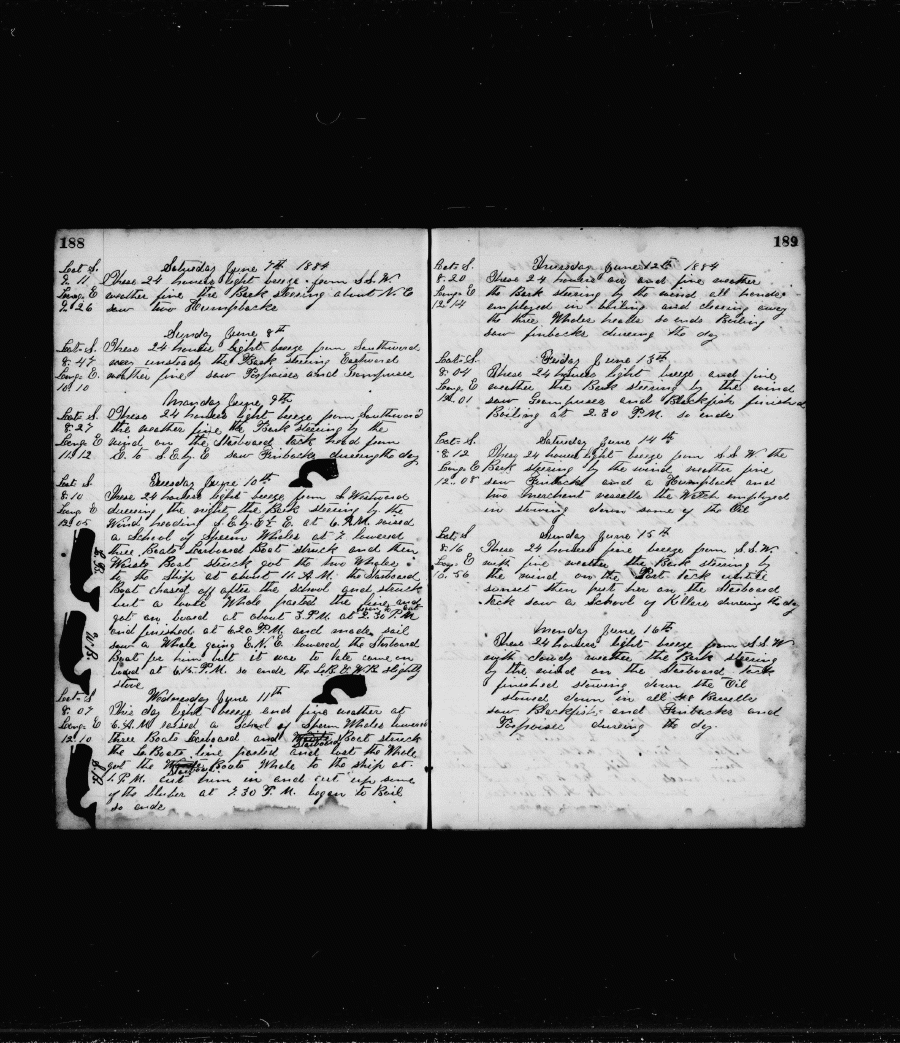 188
Saturday June 7th 1884
Lat. S. These 24 hours light breeze from S.S.W.
9. 11 weather fine the Bark steering about N.E
Long. E saw two Humpbacks
9. 26
Sunday June 8th
Lat. S. These 24 hours light breeze from Southward
8. 47 unsteady the Bark steering Eastward
Long. E. weather fine saw Porpoises and Grampuses
10. 10
Monday June 9th
Lat. S These 24 hours light breeze from Southward
8. 27 the weather fine the Bark steering by the
Long. E wind on the Starboard tack head from
11. 12 S.E. by E saw Finbacks during the day
Tuesday June 10th
Lat. S These 24 hours light breeze from S. Westward
8. 10 during the night the Bark steering by the
Long. E Wind heading S.E. by E. at 6. A.M. raised
12. 05 a School of Sperm Whales at 7 lowered
three Boats Larboard Boat struck and then
Waist Boat struck got the two Whales
L.B. to the Ship at about 11. A.M. the Starboard
Boat chased off after the School and struck
but a loose Whale parted the line and
got on board at about 3. P.M. at 2.30 P.M.
and finished at 6.20 P.M. and made sail
W.B. saw a Whale going E.N.E. lowered the Starboard
Boat for him but it was to late came on
board at 6.15. P.M. so ends the L.B. & W.B. slightly
stove
Wednesday June 11th
Lat. S This day light breeze and fine weather at
8. 07 6. A.M. raised a School of Sperm Whales lowered
Long. E three Boats Larboard and Waist Starboard Boat struck
12. 10 the La Boats line parted and lost the Whale
got the Waist Starboard Boats Whale to the ship at
S.B. 1. P.M. cut him in and cut up some
of the Blubber at 7.30 P.M. began to Boil
so ends
189
Thursday June 12th 1884
Lat. S. These 24 hours air and fine weather
8. 20 the Bark steering by the wind all hands
Long. E employed in boiling and clearing away
12. 14 the three Whales heads so ends Boiling
saw finbacks during the day
Friday June 13th
Lat. S. These 24 hours light breeze and fine
8. 04 weather the Bark steering by the wind
Long. E saw Grampuses and Blackfish finished
12. 01 Boiling at 2.30 P.M. so ends
Saturday June 14th
Lat. S. These 24 hours light breeze from S.S.W the
8. 12 Bark steering by the wind weather fine
Long. E saw Finbacks and a Humpback and
12. 08 two merchant vessells the Watch employed
in stowing down some of the Oil
Sunday June 15th
Lat. S These 24 hours fine breeze from S.S.W.
8. 16 with fine weather the Bark steering by
Long. E the wind on the Port tack untill
10. 56 sunset then put her on the Starboard
tack saw a School of Killers during the day
Monday June 16th
These 24 hours light breeze from S.S.W
with cloudy weather the Bark steering
by the wind on the Starboard tack
finished stowing down the Oil
stowed down in all 48 Barrells
saw Blackfish and Finbacks and
Porpoises during the day